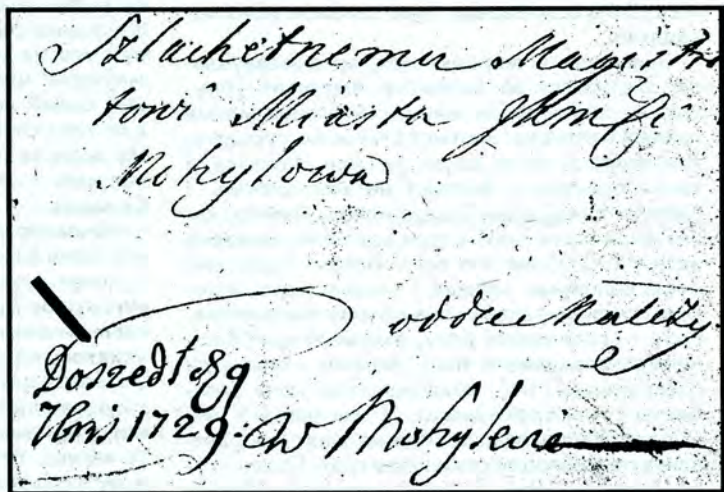 Szlachetnemu Magistra
towi Miasta JKMści
Mohylowa
oddac Należy
Doszedł 9
1729. w Mohylewie